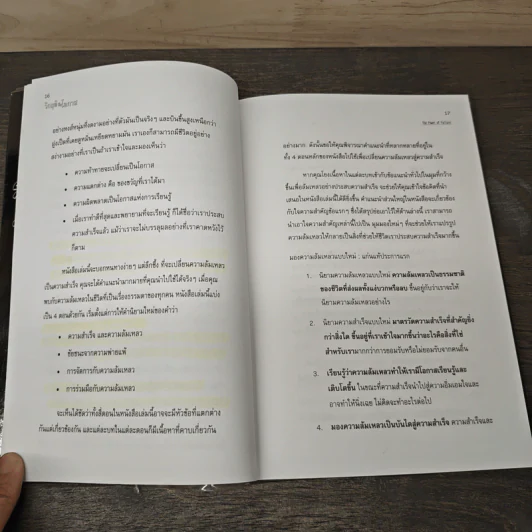 36
วิกฤติพาโอกาส
อย่างหงส์หนุ่มที่งดงามอย่างที่ตัวมันเป็นจริงๆ และบินขึ้นสูงเหนือกว่า
ฝูงเป็ดที่เคยดูหมิ่นเหยียดหยามมัน เราเองก็สามารถมีชีวิตอยู่อย่าง
สง่างามอย่างที่เราเป็นถ้าเราเข้าใจและมองเห็นว่า
• ความท้าทายจะเปลี่ยนเป็นโอกาส
• ความแตกต่าง คือ ของขวัญที่เราได้มา
• ความผิดพลาดเป็นโอกาสแห่งการเรียนรู้
• เมื่อเราทำดีที่สุดและพยายามที่จะเรียนรู้ ก็ได้ชื่อว่าเราประสบ
ความสำเร็จแล้ว แม้ว่าเราจะไม่บรรลุผลอย่างที่เราคาดหวังไว้
ก็ตาม
หนังสือเล่มนี้จะบอกหนทางง่ายๆ แต่ลึกซึ้ง ที่จะเปลี่ยนความล้มเหลว
เป็นความสำเร็จ คุณจะได้คำแนะนำมากมายที่คุณนำไปใช้ได้จริงๆ เมื่อคุณ
พบกับความล้มเหลวในชีวิตที่เป็นเรื่องธรรมดาของทุกคน หนังสือเล่มนี้แบ่ง
เป็น 4 ตอนด้วยกัน เริ่มตั้งแต่การให้คำนิยามใหม่ของคำว่า
• ความสำเร็จ และความล้มเหลว
• ชัยชนะจากความพ่ายแพ้
• การจัดการกับความล้มเหลว
• การร่วมมือกับความล้มเหลว
จะเห็นได้ชัดว่าทั้งสี่ตอนในหนังสือเล่มนี้อาจจะมีหัวข้อที่แตกต่าง
กันแต่เกี่ยวข้องกัน และแต่ละบทในแต่ละตอนก็มีเนื้อหาที่คาบเกี่ยวกัน
37
อย่างมาก ดังนั้นขอให้คุณพิจารณาคำแนะนำที่หลากหลายที่อยู่ใน
ทั้ง 4 ตอนหลักของหนังสือไปใช้เพื่อเปลี่ยนความล้มเหลวสู่ความสำเร็จ
หากคุณโยงเนื้อหาในแต่ละบทเข้ากับข้อแนะนำทั่วไปในมุมที่กว้าง
ขึ้นเพื่อล้มเหลวอย่างประสบความสำเร็จ จะช่วยให้คุณเข้าใจข้อคิดที่นำ
เสนอในหนังสือเล่มนี้ได้ดียิ่งขึ้น คำแนะนำส่วนใหญ่ในหนังสือจะเกี่ยวข้อง
กับใจความสำคัญข้อแรกๆ ซึ่งได้สรุปย่อเอาไว้ให้ด้านล่างนี้ เราสามารถ
นำเอาใจความสำคัญเหล่านี้ไปเป็น มุมมองใหม่ๆ ที่จะช่วยให้เราแปรรูป
ความล้มเหลวให้กลายเป็นสิ่งที่ช่วยให้ชีวิตเราประสบความสำเร็จมากขึ้น
มองความล้มเหลวแบบใหม่ : แก่นแท้ประการแรก
1. นิยามความล้มเหลวแบบใหม่ ความล้มเหลวเป็นธรรมชาติ
ของชีวิตที่ส่งผลทั้งแง่บวกหรือลบ ขึ้นอยู่กับว่าเราจะให้
นิยามความล้มเหลวอย่างไร
2. นิยามความสำเร็จแบบใหม่ มาตรวัดความสำเร็จที่สำคัญยิ่ง
กว่าสิ่งใด ขึ้นอยู่ที่เราเข้าใจมากขึ้นว่าอะไรคือสิ่งที่ใช่
สำหรับเรามากกว่าการยอมรับหรือไม่ยอมรับจากคนอื่น
3. เรียนรู้ว่าความล้มเหลวทำให้เรามีโอกาสเรียนรู้และ
เติบโตขึ้น ในขณะที่ความสำเร็จนำไปสู่ความอิ่มเอมใจและ
อาจทำให้นิ่งเฉย ไม่คิดจะทำอะไรต่อไป
4. มองความล้มเหลวเป็นบันไดสู่ความสำเร็จ ความสำเร็จและ